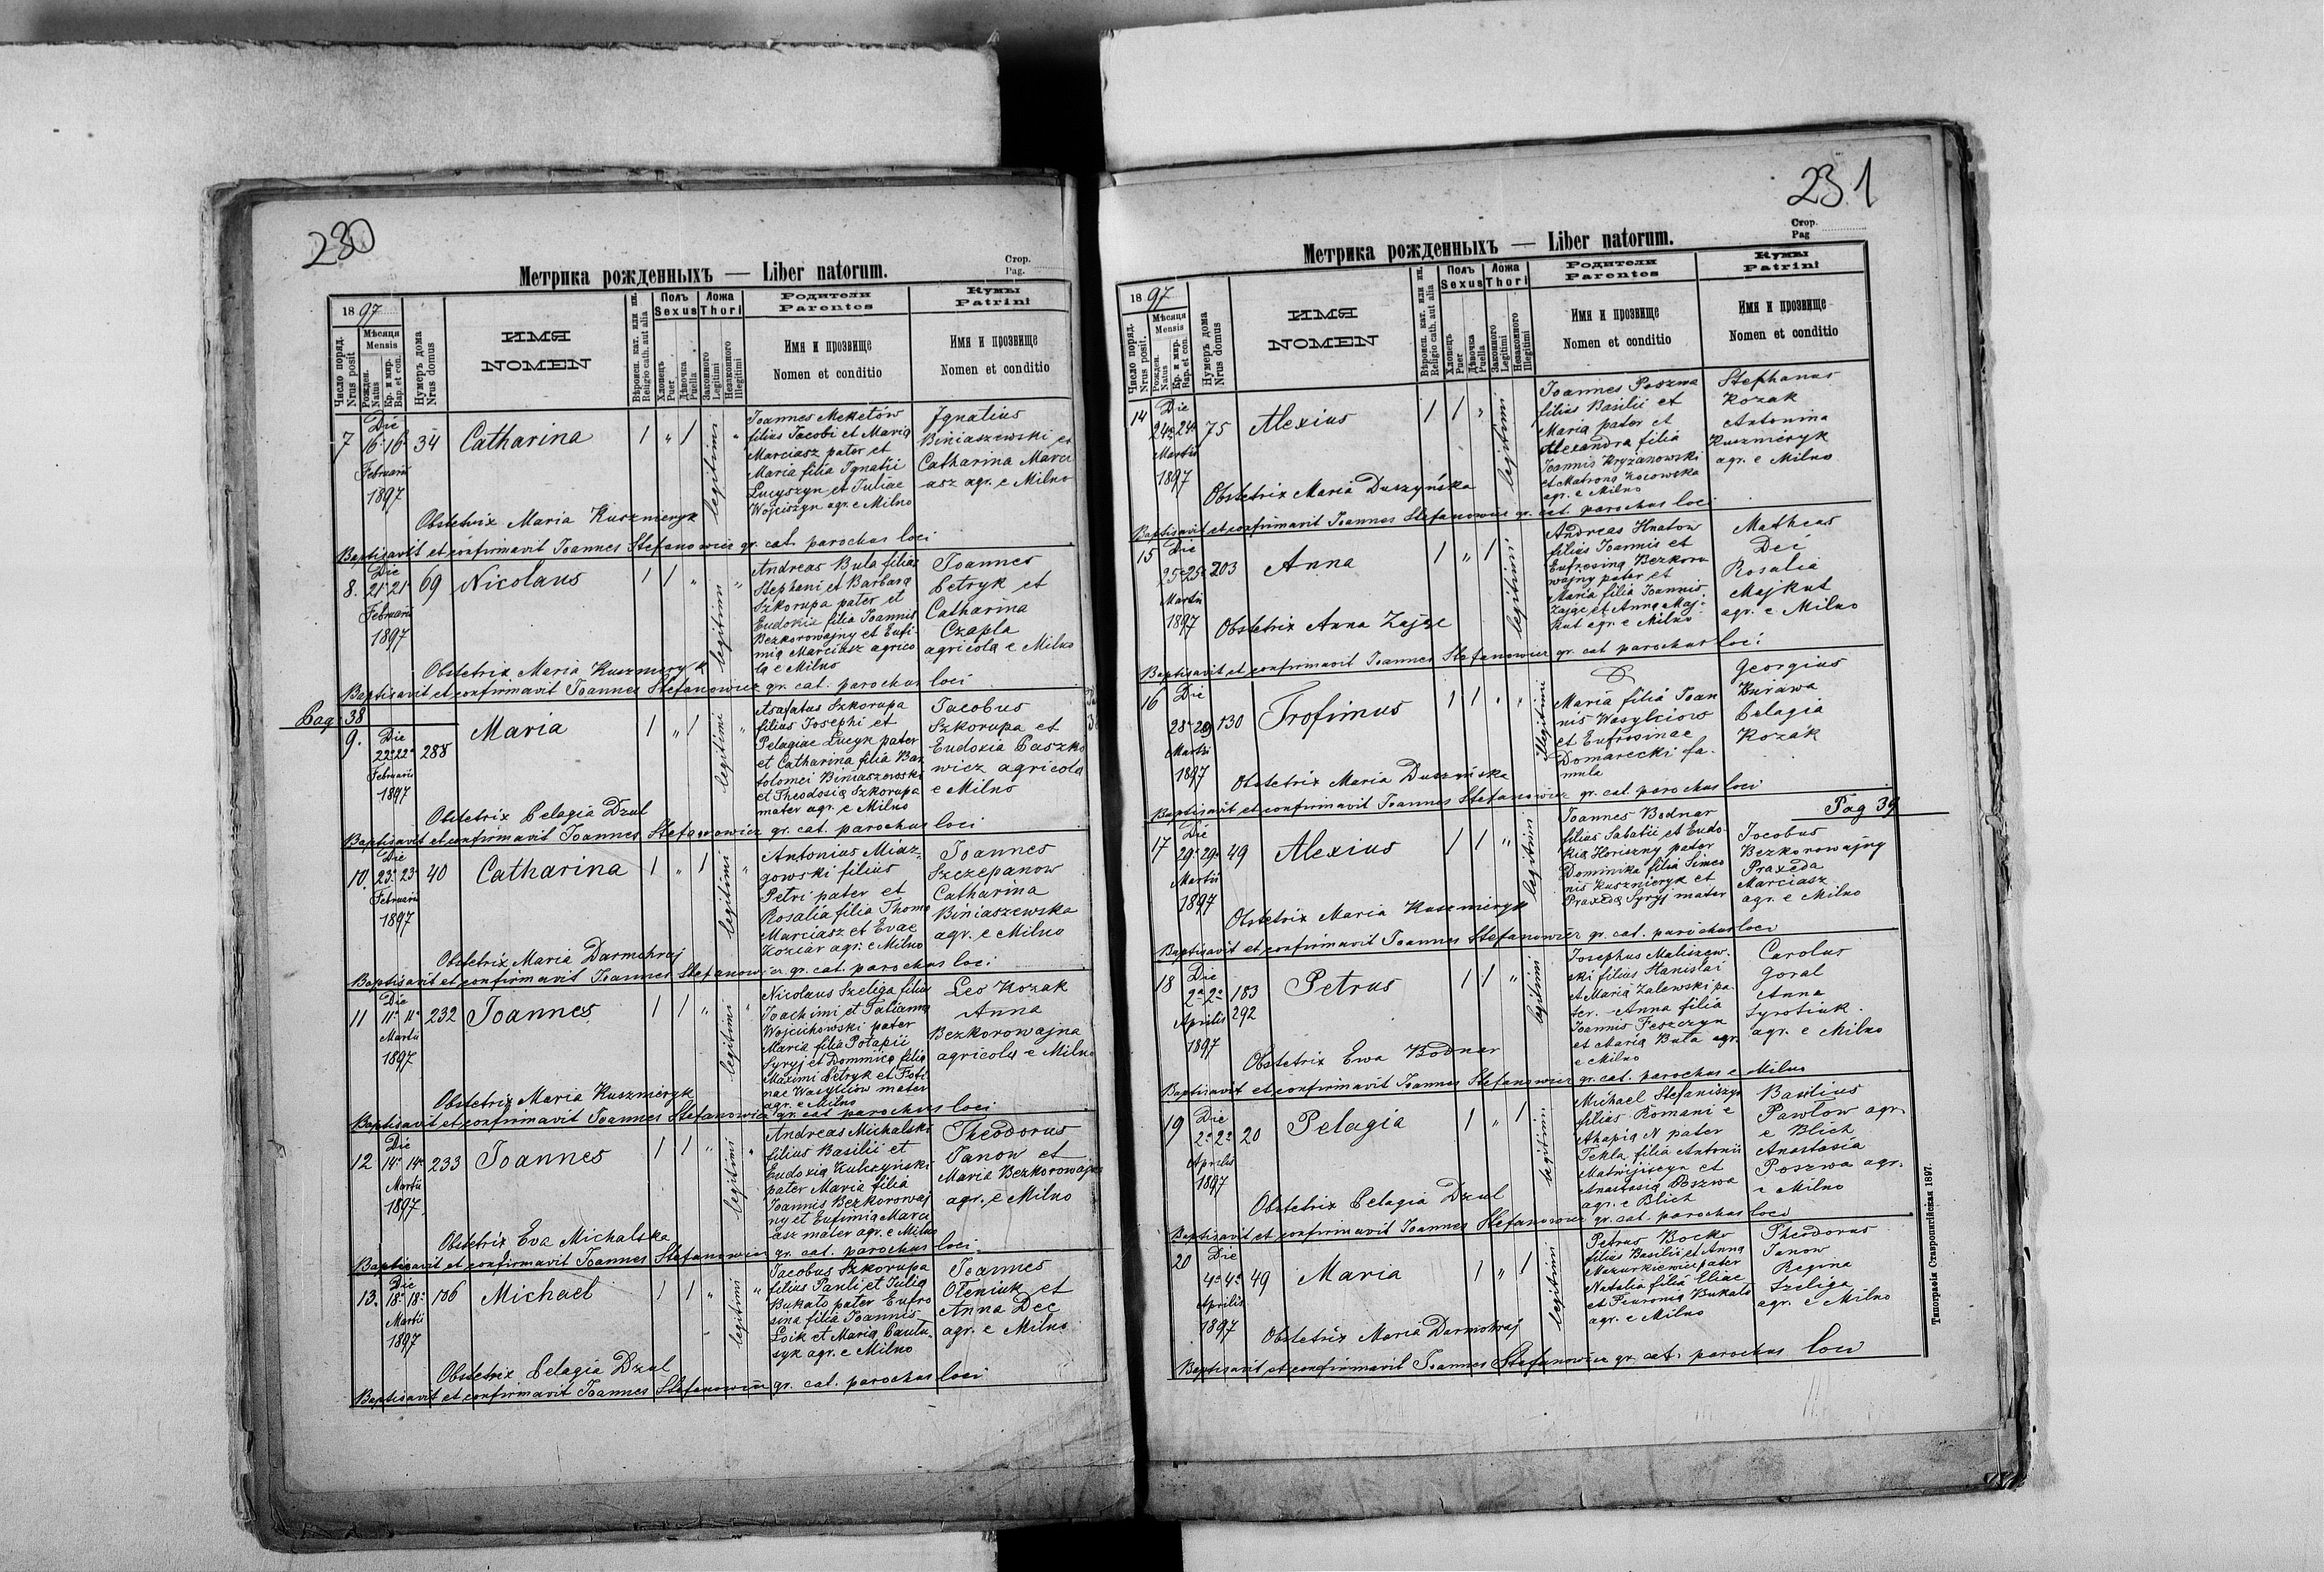 230
Метрика рожденныхъ — Liber natorum.
Стор.
Pag.
1897
Число поряд.
Nrus posit
Мѣсяця
Mensis
Рожден.
Natus
Кр. и мир.
Bap. et con.
Нумеръ дома
Nrus domus
ИМЯ
NOMEN
Вѣроисп. кат. или ин.
Religio cath. aut alia
Полъ
Sexus
Хлопець
Puer
Дѣвочка
Puella
Ложа
Thori
Законного
Legitimi
Незаконного
Illegitimi
Родители
Parentes
Имя и прозвище
Nomen et conditio
Кумы
Patrini
Имя и прозвище
Nomen et conditio
7 Die 16 16 Februarii 1897
34 Catharina 1 " 1 legitimi "
Joannes Meketów
filius Jacobi et Maria
Marciasz pater et
Maria filia Ignatii
Lucyszyn et Juliae
Wojciszyn agr. e Milno
Ignatius
Biniaszewski et
Catharina Marci
asz agr. e Milno
Obstetrix Maria Kuszmeryk
Baptisavit et confirmavit Joannes Stefanowicz gr. cat. parochus loci
8. Die 21 21 Februarii 1897
69 Nicolaus 1 1 " legitimi "
Andreas Bula filius
Stephani et Barbara
Szkorupa pater et
Eudokia filia Joannis
Bezkorowajny et Eufi-
mia Marciasz agrico
la e Milno
Joannes
Petryk et
Catharina
Czapla
agricola e Milno
Obstetrix Maria Kuszmeryk
Baptisavit et confirmavit Joannes Stefanowicz gr. cat. parochus loci
Pag 38
9. Die 22 22 Februarii 1897
288 Maria 1 " 1 legitimi "
Asafatus Szkorupa
filius Josephi et
Pelagiae Lucyk pater
et Catharina filia Bar
tolomei Biniaszewski
et Theodosia Szkorupa
mater agr. e Milno
Jacobus
Szkorupa et
Eudoxia Paszko
wicz agricola
e Milno
Obstetrix Pelagia Dzul
Baptisavit et confirmavit Joannes Stefanowicz gr. cat. parochus loci
10. Die 23 23 Februarii 1897
40 Catharina 1 " 1 legitimi "
Antonius Miaz-
gowski filius
Petri pater et
Rosalia filia Thome
Marciasz et Evae
Koziar agr. e Milno
Joannes
Szczepanow
Catharina
Biniaszewska
agr. e Milno
Obstetrix Maria Darmohraj
Baptisavit et confirmavit Joannes Stefanowicz gr. cat. parochus loci
11 Die 11 11 Martii 1897
232 Joannes 1 1 " legitimi "
Nicolaus Szeliga filius
Joachimi et Tatianna
Wojciechowski pater
Maria filia Potapii
Syryj et Dominica filia
Maximi Petryk et Foti
nae Wasylciow mater
agr. e Milno
Leo Kozak
Anna
Bezkorowajna
agricola e Milno
Obstetrix Maria Kuszmeryk
Baptisavit et confirmavit Joannes Stefanowicz gr. cat. parochus loci
12 Die 14 14 Martii 1897
233 Joannes 1 1 " legitimi "
Andreas Michalski
filius Basilii et
Eudoxia Kulczyński
pater Maria filia
Joannis Bezkorowaj
ny et Eufimia Marci
asz mater agr. e Milno
Theodorus
Janow et
Maria Bezkorowajna
agr. e Milno
Obstetrix Eva Michalska
Baptisavit et confirmavit Joannes Stefanowicz gr. cat. parochus loci
13. Die 18 18 Martii 1897
106 Michael 1 1 " legitimi "
Jacobus Szkorupa
filius Pauli et Julia
Bukato pater Eufro
sina filia Joannis
Loik et Maria Pautu-
syk agr. e Milno
Joannes
Oleniuk et
Anna Dec
agr. e Milno
Obstetrix Pelagia Dzul
Baptisavit et confirmavit Joannes Stefanowicz gr. cat. parochus loci
231
Метрика рожденныхъ — Liber natorum.
Стор.
Pag
1897
Число поряд.
Nrus posit.
Мѣсяця
Mensis
Рожден.
Natus
Кр. и мир.
Bap. et con.
Нумеръ дома
Nrus domus
ИМЯ
NOMEN
Вѣроисп. кат. или ин.
Religio cath. aut alia
Полъ
Sexus
Хлопець
Puer
Дѣвочка
Puella
Ложа
Thori
Законного
Legitimi
Незаконного
Illegitimi
Родители
Parentes
Имя и прозвище
Nomen et conditio
Кумы
Patrini
Имя и прозвище
Nomen et conditio
14 Die 24 24 Martii 1897
75 Alexius 1 1 " legitimi
Joannes Poszwa
filius Basilii et
Maria pater et
Alexandra filia
Joannis Kryżanowski
et Matrona Kocowska
agr. e Milno
Stephanus
Kozak
Antonina
Kuszmeryk
agr. e Milno
Obstetrix Maria Duszyńska
Baptisavit et confirmavit Joannes Stefanowicz gr. cat. parochus loci
15 Die 25 25 Martii 1897
203 Anna 1 " 1 legitimi
Andreas Hnatow
filius Joannis et
Eufrosina Bezkoro
wajny pater et
Maria filia Joannis
Zając et Anna Maj-
kut agr. e Milno
Matheus
Deć
Rosalia
Majkut
agr. e Milno
Obstetrix Anna Zając
Baptisavit et confirmavit Joannes Stefanowicz gr. cat parochus loci
16 Die 28 29 Martii 1897
130 Trofimus 1 1 " " illegitimi
Maria filia Joan
nis Wasylciow
et Eufrosinae
Domarecki fa-
mula
Georgius
Kurawa
Pelagia
Kozak
Obstetrix Maria Duszyńska
Baptisavit et confirmavit Joannes Stefanowicz gr. cat. parochus loci
Pag 39
17 Die 29 29 Martii 1897
49 Alexius 1 1 " legitimi
Joannes Bodnar
filius Sabatii et Eudo-
kia Horiszny pater
Dominika filia Simeo
nis Kuszmeryk et
Praxeda Syryj mater
Jocobus
Bezkorowajny
Praxeda
Marciasz
agr. e Milno
Obstetrix Maria Kuszmeryk
Baptisavit et confirmavit Joannes Stefanowicz gr. cat. parochus loci
18 Die 2 2 Aprilis 1897
183
292
Petrus 1 1 " legitimi
Josephus Maliszew-
ski filius Stanislai
et Maria Zalewski pa-
ter. Anna filia
Joannis Feszczyn
et Maria Buta agr.
e Milno
Carolus
Goral
Anna
Syrotiuk
agr. e Milno
Obstetrix Ewa Bodnar
Baptisavit et confirmavit Joannes Stefanowicz gr. cat. parochus e Milno
19 Die 2 2 Aprilis 1897
20 Pelagia 1 " 1 legitimi
Michael Stefaniszyn
filius Romani e
Ahapia N pater
Tekla filia Antonii
Matwijiscyn et
Anastasia Poszwa
agr. e Blich
Basilius
Pawlow agr.
e Blich
Anastasia
Poszwa agr.
e Milno
Obstetrix Pelagia Dzul
Baptisavit et confirmavit Joannes Stefanowicz gr. cat. parochus loci
20 Die 4 4 Aprilis 1897
49 Maria 1 " 1 legitimi
Petrus Bocko
filius Basilii et Anna
Mazurkiewicz pater
Natalia filia Eliae
et Fewronia Bukato
agr. e Milno
Theodorus
Janow
Regina
Szeliga
agr. e Milno
Obstetrix Maria Darmohraj
Baptisavit et confirmavit Joannes Stefanowicz gr. cat. parochus loci
Типографія Ставропигійская 1897.